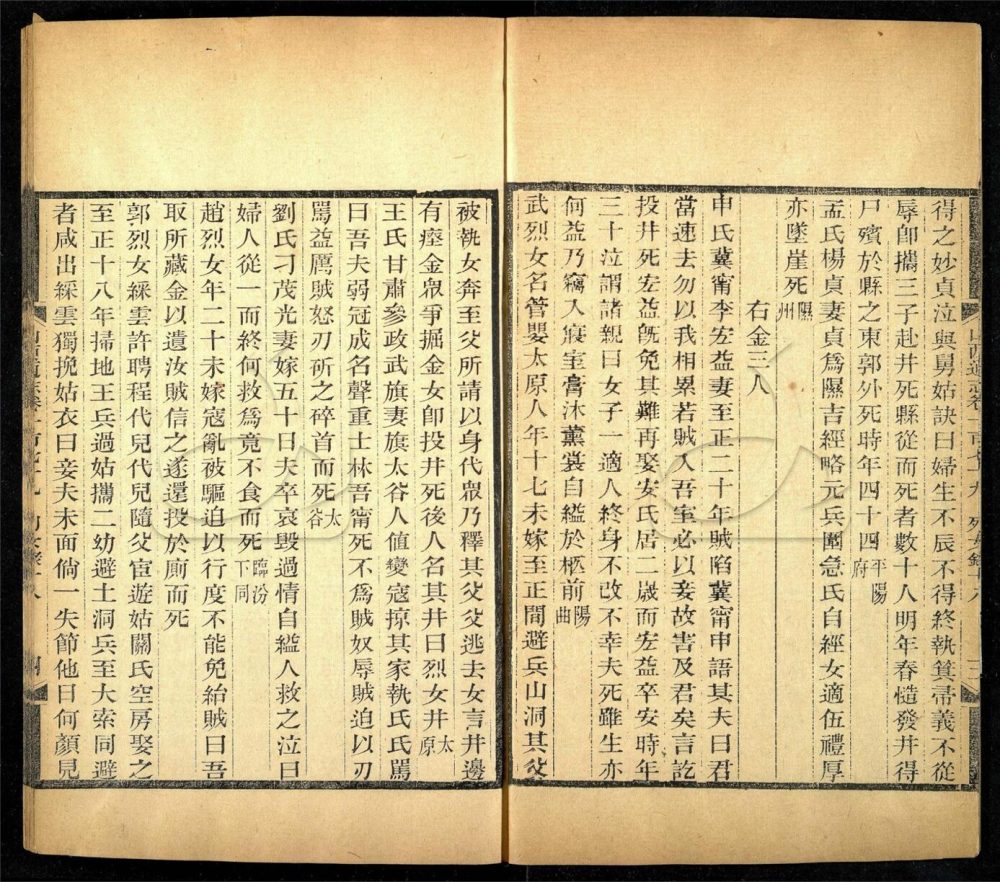 得之妙貞泣與舅姑訣曰婦生不辰不得終執箕帚義不從
辱卽攜三子赴井死縣從而死者數十人明年春慥發井得
尸殯於縣之東郭外死時年四十四平陽府
孟氏楊貞妻貞爲隰吉經略元兵圍急氏自經女適伍禮厚
亦墜崖死隰州
右金三人
申氏冀甯李宏益妻至正二十年賊陷冀甯申語其夫曰君
當速去勿以我相累若賊入吾室必以妾故害及君矣言訖
投井死宏益旣免其難再娶安氏居二歲而宏益卒安時年
三十泣謂諸親曰女子一適人終身不改不幸夫死雖生亦
何益乃竊入寢室膏沐薰裳自縊於柩前陽曲
武烈女名管嬰太原人年十七未嫁至正間避兵山洞其父
被執女奔至父所請以身代眾乃釋其父父逃去女言井邊
有瘞金眾爭掘金女卽投井死後人名其井曰烈女井太原
王氏甘肅參政武旗妻旗太谷人値變寇掠其家執氏氏罵
曰吾夫弱冠成名聲重士林吾甯死不爲賊奴辱賊迫以刃
罵益厲賊怒刃斫之碎首而死太谷
劉氏刁茂光妻嫁五十日夫卒哀毀過情自縊人救之泣曰
婦人從一而終何救爲竟不食而死臨汾下同
趙烈女年二十未嫁寇亂被驅迫以行度不能免紿賊曰吾
取所藏金以遺汝賊信之遂還投於厠而死
郭烈女綵雲許聘程代兒代兒隨父宦遊姑關氏空房娶之
至正十八年掃地王兵過姑攜二幼避土洞兵至大索同避
者咸出綵雲獨挽姑衣曰妾夫未面倘一失節他日何顏見